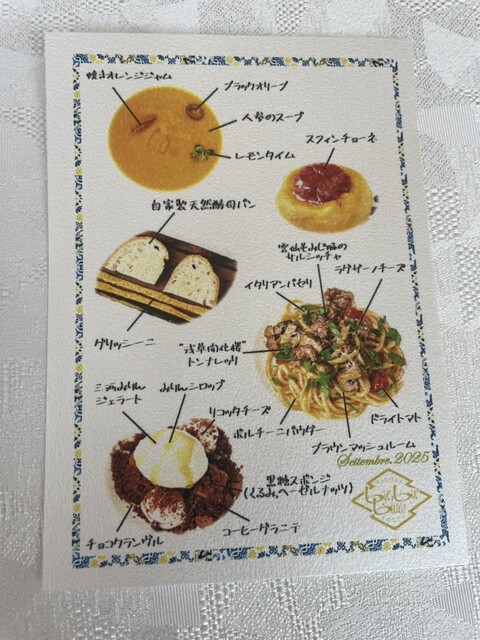 焼きオレンジジャム
ブラックオリーブ
人参のスープ
レモンタイム
スフィンチョーネ
自家製天然酵母パン
グリッシーニ
サルシッチャ
ラグサーノチーズ
イタリアンパセリ
"浅草開化楼"
トンナレッリ
ドライトマト
ブラウンマッシュルーム
ポルチーニパウダー
三河みりん
ジェラート
みりんシロップ
リコッタチーズ
黒糖スポンジ
(くるみ、ヘーゼルナッツ)
コーヒーグラニテ
チョコクランブル
Settembre.2025